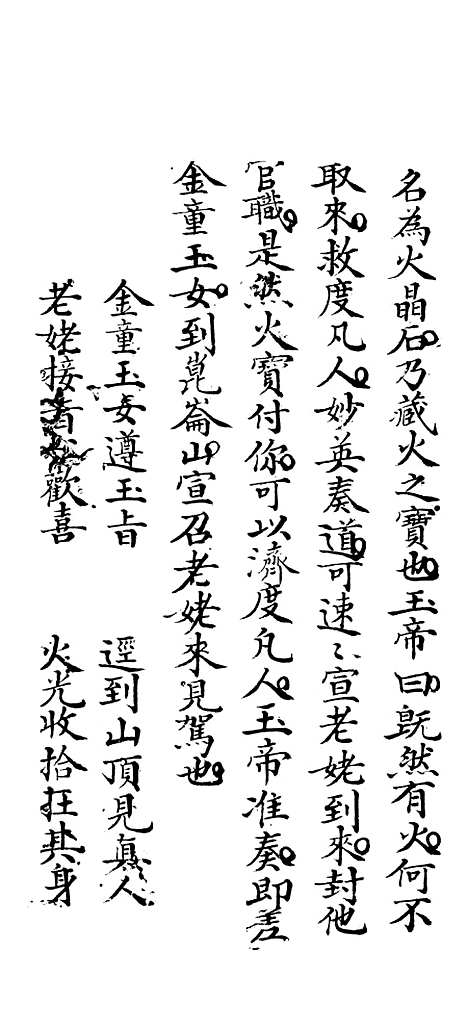 名為火晶石。乃藏火之寶也。玉帝曰。既然有火。何不
取來。救度凡人。妙英奏道。可速〻宣老姥到來。封他
官職。是火寶付你。可以濟度凡人。玉帝准奏。即差
金童玉女。到崑崙山。宣召老姥來見駕也。
金童玉女遵玉旨　逕到山頂見真人
老姥接着歡喜　火光收拾在其身